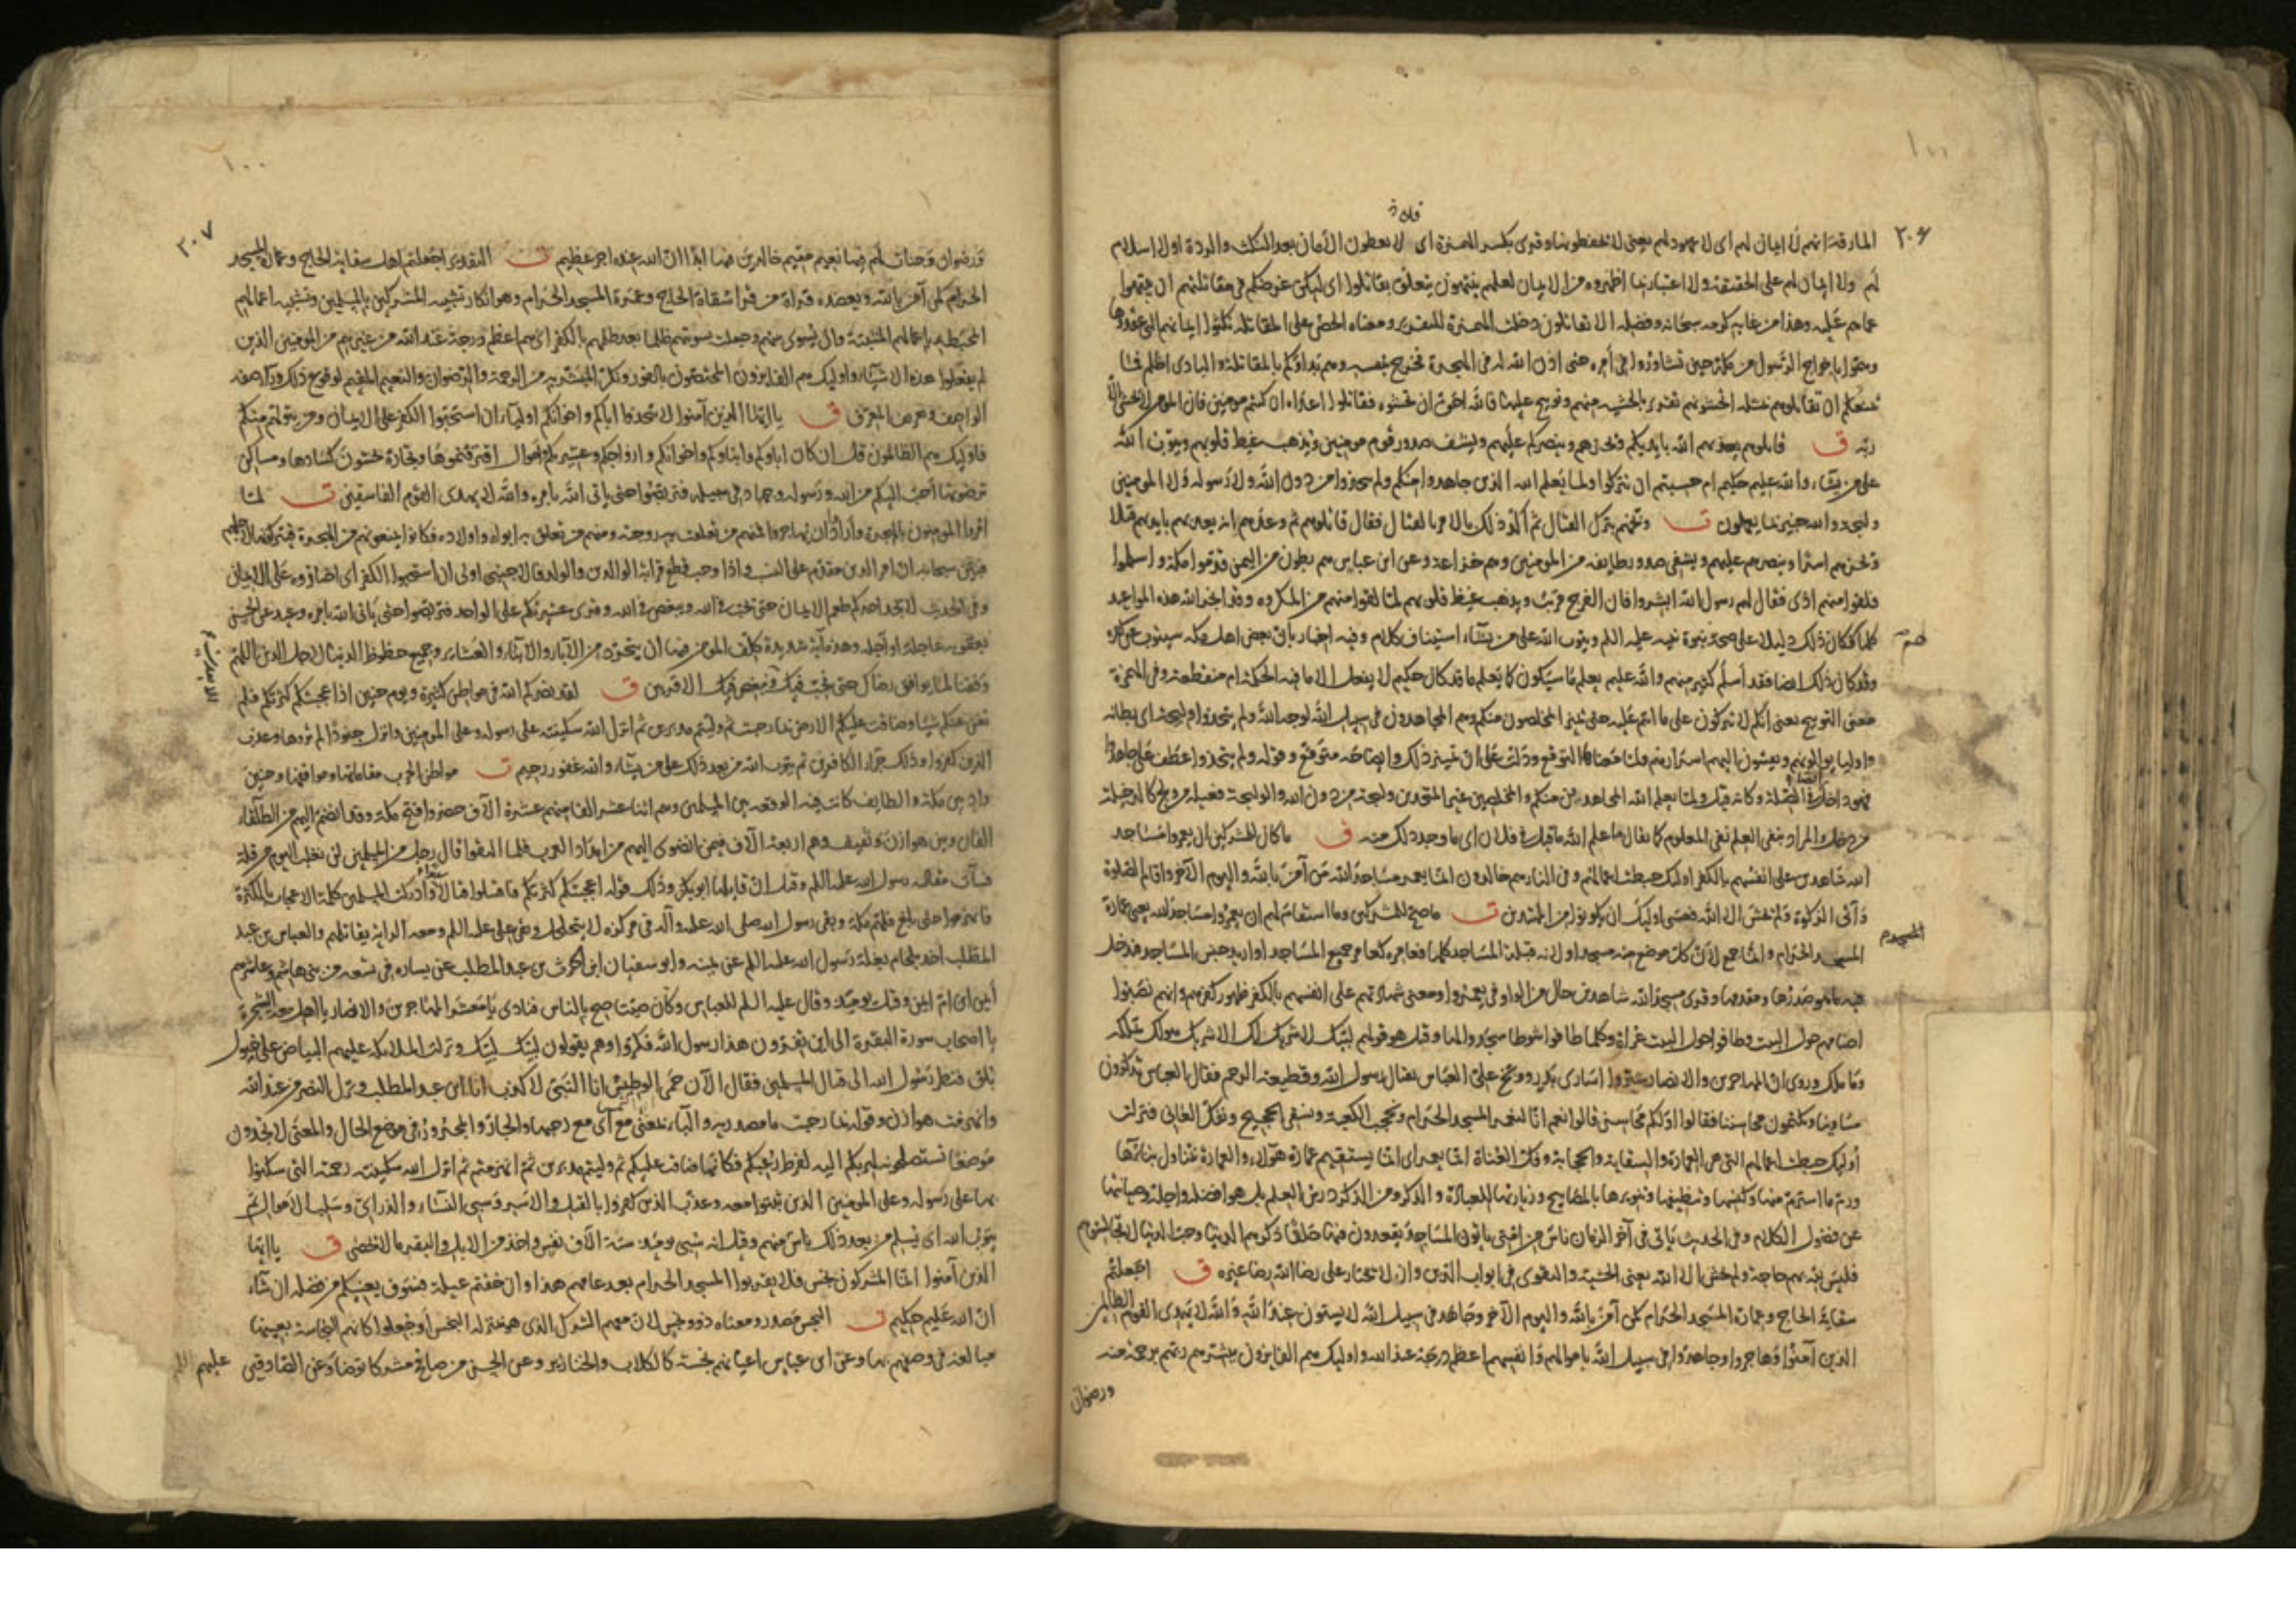 ٢٠٦
قلادة
المارقة انهم لا ايمان لهم اى لا عهود لهم يعنى لا يحفظونها وقرئ بكسر الهمزة اى لا يعطون الأمان بعد النكث والردة او لا اسلام
لهم ولا ايمان لهم على الحقيقة ولا اعتبار بما اظهروه من الايمان لعلهم ينتهون يتعلق بقاتلوا اى ليكن غرضكم فى مقاتلتهم ان ينتهوا
عما هم عليه وهذا من غاية كرمه سبحانه وفضله الا تقاتلون دخلت الهمزة للتقرير ومعناه الحض على المقاتلة نكثوا ايمانهم التى عقدوها
وهموا باخراج الرسول من مكة حين تشاوروا فى أمره حتى اذن الله له فى الهجرة فخرج بنفسه وهم بدأوكم بالمقاتلة والبادى اظلم فما
يمنعكم ان تقاتلوهم بمثله اتخشونهم تقرير بالخشية منهم وتوبيخ عليها فالله احق ان تخشوه فقاتلوا اعداءه ان كنتم مومنين فان المومن لا يخشى الا
ربه ق قاتلوهم يعذبهم الله بايديكم ويخزهم وينصركم عليهم ويشف صدور قوم مومنين ويذهب غيظ قلوبهم ويتوب الله
على من يشاء والله عليم حكيم ام حسبتم ان تتركوا ولما يعلم الله الذين جاهدوا منكم ولم يتخذوا من دون الله ولا رسوله ولا المومنين
وليجة والله خبير بما يعملون ت وبخهم بترك القتال ثم اكد ذلك بالامر بالقتال فقال قاتلوهم ثم وعدهم انه يعذبهم بايديهم قتلا
ويخزيهم اسرا وينصرهم عليهم ويشفى صدور طايفة من المومنين وهم خزاعة وعن ابن عباس هم بطون من اليمن قدموا مكة واسلموا
فلقوا منهم اذى فقال لهم رسول الله ابشروا فان الفرج قريب ويذهب غيظ قلوبهم لما لقوا منهم من المكروه وقد انجز الله هذه المواعيد
كلها فكان ذلك دليلا على صحة نبوة نبيه عليه السلم ويتوب الله على من يشاء استيناف كلام وفيه اخبار بان بعض اهل مكة سيتوب عن كفره
وقد كان ذلك ايضا فقد أسلم كثير منهم والله عليم يعلم ما سيكون كما يعلم ما قد كان حكيم لا يفعل الا ما فيه الحكمة ام منقطعة وفى الهمزة
معنى التوبيخ يعنى انكم لا تتركون على ما انتم عليه حتى يتبين المخلصون منكم وهم المجاهدون فى سبيل الله لوجه الله ولم يتخذوا وليجة اى بطانة
واوليا يوالونهم ويفشون اليهم اسرارهم ولما معناها التوقع ودلت على ان تبيين ذلك وايضاحه متوقع وقوله ولم يتخذوا عطف على جاهدوا
من دخل والمراد بنفى العلم نفى المعلوم كما يقال ما علم الله ما قيل فى فلان اى ما وجد ذلك منه ق ما كان للمشركين ان يعمروا مساجد
الله شاهدين على انفسهم بالكفر اوليك حبطت اعمالهم وفى النار هم خالدون انما يعمر مساجد الله من آمن بالله واليوم الآخر واقام الصلوة
وآتى الزكوة ولم يخش الا الله فعسى اوليك ان يكونوا من المهتدين ت ما صح للمشركين وما استقام لهم ان يعمروا مساجد الله يعنى عمارة
المسجد الحرام وانما جمع لان كل موضع منه مسجد او لانه قبلة المساجد كلها فعامره كعامر جميع المساجد او اريد جنس المساجد فدخل
فيه ما هو صدرها ومقدمها وقرئ مسجد الله شاهدين حال من الواو فى يعمروا ومعنى شهادتهم على انفسهم بالكفر ظهور كفرهم وانهم نصبوا
اصنامهم حول البيت وطافوا حول البيت عراة وكلما طافوا شوطا سجدوا لها وقيل هو قولهم لبيك لا شريك لك الا شريك هو لك تملكه
وما ملك وروى ان المهاجرين والانصار عيروا اسارى بدر ووبخ على العباس بقتال رسول الله وقطيعة الرحم فقال العباس تذكرون
مساوينا وتكتمون محاسننا فقالوا اولكم محاسن قالوا نعم انا لنعمر المسجد الحرام ونحجب الكعبة ونسقى الحجيج ونفك العانى فنزلت
أوليك حبطت اعمالهم التى هى العمارة والسقاية والحجابة وفك العناة انما يعمر اى انما يستقيم عمارة هؤلاء والعمارة تتناول بناءها
ورم ما استرم منها وكنسها وتنظيفها وتنويرها بالمصابيح وزيارتها للعبادة والذكر ومن الذكر درس العلم بل هو افضله واجله وصيانتها
عن فضول الكلام وفى الحديث يأتى فى آخر الزمان ناس من امتى ياتون المساجد يقعدون فيها حلقا ذكرهم الدنيا وحب الدنيا لا تجالسوهم
فليس لله بهم حاجة ولم يخش الا الله يعنى الخشية والتقوى فى ابواب الدين وان لا يختار على رضا الله رضا غيره ق اجعلتم
سقاية الحاج وعمارة المسجد الحرام كمن آمن بالله واليوم الآخر وجاهد فى سبيل الله لا يستون عند الله والله لا يهدى القوم الظالمين
الذين آمنوا وهاجروا وجاهدوا فى سبيل الله باموالهم وانفسهم اعظم درجة عند الله واوليك هم الفايزون يبشرهم ربهم برحمة منه
ورضوان
٢٠٧
١٠٠
ورضوان وجنات لهم فيها نعيم مقيم خالدين فيها ابدا ان الله عنده اجر عظيم ت التقدير اجعلتم اهل سقاية الحاج وعمارة المسجد
الحرام كمن آمن بالله ويعضده قراءة من قرأ سقاة الحاج وعمرة المسجد الحرام وهو انكار تشبيه المشركين بالمسلمين وتشبيه اعمالهم
المحبطة باعمالهم المثبتة وان يسوى بينهم وجعلت تسويتهم ظلما بعد ظلمهم بالكفر اى هم اعظم درجة عند الله من غيرهم من المومنين الذين
لم يفعلوا هذه الاشياء واوليك هم الفايزون المختصون بالفوز ونكر المبشر به من الرحمة والرضوان والنعيم المقيم لوقوع ذلك وراء صفة
الواصف وتعريف المعرف ق يا ايها الذين آمنوا لا تتخذوا اباءكم واخوانكم اولياء ان استحبوا الكفر على الايمان ومن يتولهم منكم
فاوليك هم الظالمون قل ان كان اباؤكم وابناؤكم واخوانكم وازواجكم وعشيرتكم واموال اقترفتموها وتجارة تخشون كسادها ومساكن
ترضونها أحب اليكم من الله ورسوله وجهاد فى سبيله فتربصوا حتى ياتى الله بامره والله لا يهدى القوم الفاسقين ت لما
امروا المومنون بالهجرة وارادوا ان يهاجروا فمنهم من تعلقت به زوجته ومنهم من تعلق به ابواه واولاده فكانوا يمنعونهم من الهجرة فيتركونها لاجلهم
فبين سبحانه ان امر الدين مقدم على النسب واذا وجب قطع قرابة الوالدين والولد فالاجنبى اولى ان استحبوا الكفر اى اختاروه على الايمان
وفى الحديث لا يجد احدكم طعم الايمان حتى يحب فى الله ويبغض فى الله وقرئ عشيرتكم على الواحد فتربصوا حتى يأتى الله بامره وعيد عن الحسن
بعقوبة عاجلة او آجلة وهذه آية شديدة كلف المومن فيها ان يتجرد من الآباء والابناء والعشاير وجميع حظوظ الدنيا لاجل الدين اللهم
وفقنا لما يوافق رضاك حتى نحب فيك ونبغض فيك الاقربين ق لقد نصركم الله فى مواطن كثيرة ويوم حنين اذ اعجبتكم كثرتكم فلم
تغن عنكم شيئا وضاقت عليكم الارض بما رحبت ثم وليتم مدبرين ثم انزل الله سكينته على رسوله وعلى المومنين وانزل جنودا لم تروها وعذب
الذين كفروا وذلك جزاء الكافرين ثم يتوب الله من بعد ذلك على من يشاء والله غفور رحيم ت مواطن الحرب مقاماتها ومواقفها وحنين
واد بين مكة والطايف كانت فيه الوقعة بين المسلمين وهم اثنا عشر الفا منهم عشرة الآف حضروا فتح مكة وقد انضم اليهم من الطلقاء
الفان وبين هوازن وثقيف وهم اربعة الآف فيمن انضوى اليهم من امداد العرب فلما التقوا قال رجل من المسلمين لن نغلب اليوم من قلة
فساءت مقالته رسول الله عليه السلم وقيل ان قايلها ابو بكر وذلك قوله اعجبتكم كثرتكم فاقتتلوا قتالا شديدا وادركت المسلمين كلمة الاعجاب بالكثرة
فانهزموا حتى بلغ فلهم مكة وبقى رسول الله صلى الله عليه وآله فى مركزه لا يتحلحل وبقى على عليه السلم ومعه الراية يقاتلهم والعباس بن عبد
المطلب آخذ بلجام بغلة رسول الله عليه السلم عن يمينه وابو سفيان ابن الحرث بن عبد المطلب عن يساره فى تسعة من بنى هاشم وعاشرهم
أيمن ابن ام ايمن وقتل يوميذ وقال عليه السلم للعباس وكان صيتا صح بالناس فنادى يا معشر المهاجرين والانصار يا اهل بيعة الشجرة
يا اصحاب سورة البقرة الى اين تفرون هذا رسول الله فكروا وهم يقولون لبيك لبيك ونزلت الملايكة عليهم البياض على خيول
بلق فنظر رسول الله الى قتال المسلمين فقال الآن حمى الوطيس انا النبى لا كذب انا ابن عبد المطلب ونزل النصر من عند الله
وانهزمت هوازن وقوله بما رحبت ما مصدرية والباء بمعنى مع اى مع رحبها والجار والمجرور فى موضع الحال والمعنى لا تجدون
موضعا تستصلحونه لهربكم اليه لفرط رعبكم فكانها ضاقت عليكم ثم وليتم مدبرين ثم انهزمتم ثم انزل الله سكينته رحمته التى سكنوا
بها على رسوله وعلى المومنين الذين ثبتوا معه وعذب الذين كفروا بالقتل والاسر وسبى النساء والذرارى وسلب الاموال ثم
يتوب الله اى يسلم من بعد ذلك ناس منهم وقيل انه سبى يوميذ ستة الآف نفس واخذ من الابل والبقر ما لا يحصى ق يا ايها
الذين آمنوا انما المشركون نجس فلا يقربوا المسجد الحرام بعد عامهم هذا وان خفتم عيلة فسوف يغنيكم من فضله ان شآء
ان الله عليم حكيم ت النجس مصدر ومعناه ذوو نجس لان معهم الشرك الذى هو بمنزلة النجس او جعلوا كانهم النجاسة بعينها
مبالغة فى وصفهم بها وعن ابن عباس اعيانهم نجسة كالكلاب والخنازير وعن الحسن من صافح مشركا توضأ وعن الصادقين عليهم